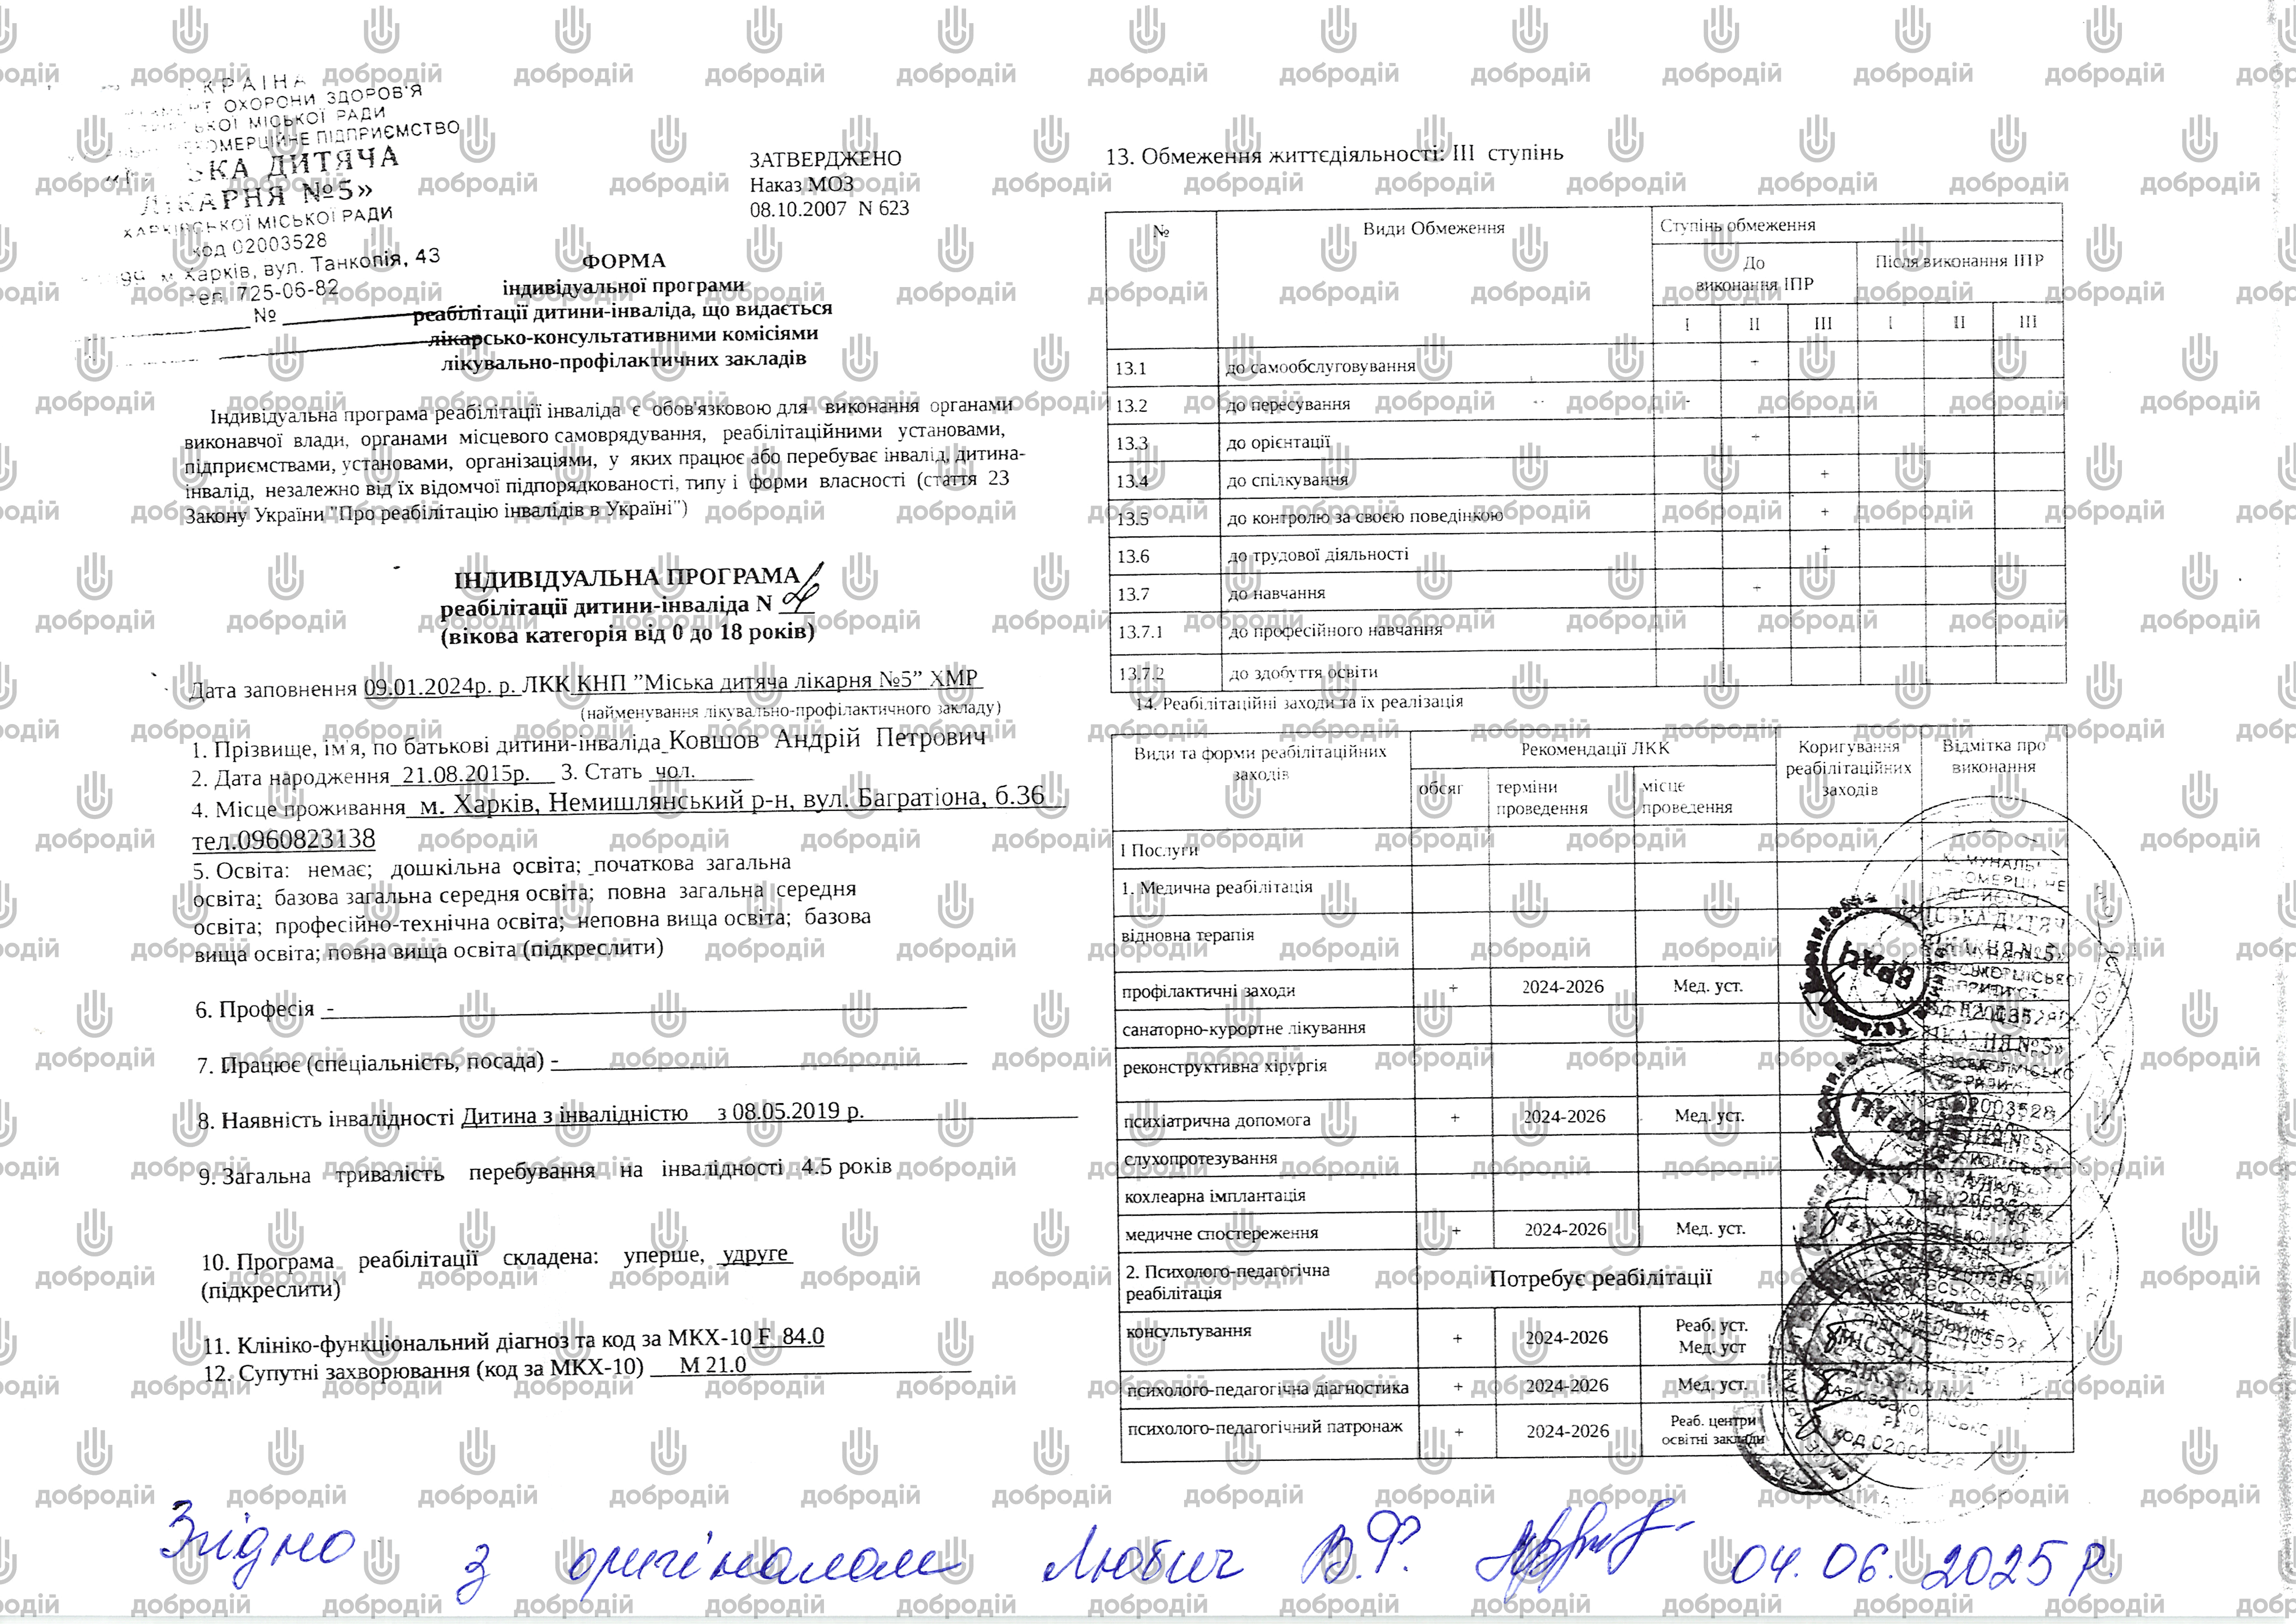 УКРАЇНА
ОХОРОНИ ЗДОРОВ'Я
МІСЬКОЇ РАДИ
НЕКОМЕРЦІЙНЕ ПІДПРИЄМСТВО
ДИТЯЧА
ЛІКАРНЯ №5»
ХАРКІВСЬКОЇ МІСЬКОЇ РАДИ
код 02003528
м. Харків, вул. Танкопія, 43
тел. 725-06-82
№
ЗАТВЕРДЖЕНО
Наказ МОЗ
08.10.2007 N 623
ФОРМА
індивідуальної програми
реабілітації дитини-інваліда, що видається
лікарсько-консультативними комісіями
лікувально-профілактичних закладів
Індивідуальна програма реабілітації інваліда є обов'язковою для виконання органами
виконавчої влади, органами місцевого самоврядування, реабілітаційними установами,
підприємствами, установами, організаціями, у яких працює або перебуває інвалід, дитина-
інвалід, незалежно від їх відомчої підпорядкованості, типу і форми власності (стаття 23
Закону України "Про реабілітацію інвалідів в Україні")
ІНДИВІДУАЛЬНА ПРОГРАМА
реабілітації дитини-інваліда N
(вікова категорія від 0 до 18 років)
Дата заповнення 09.01.2024р. р. ЛКК КНП ”Міська дитяча лікарня №5” ХМР
(найменування лікувально-профілактичного закладу)
1. Прізвище, ім'я, по батькові дитини-інваліда Ковшов Андрій Петрович
2. Дата народження 21.08.2015р. 3. Стать чол.
4. Місце проживання м. Харків, Немишлянський р-н, вул. Багратіона, б.36
тел.0960823138
5. Освіта: немає; дошкільна освіта; початкова загальна
освіта; базова загальна середня освіта; повна загальна середня
освіта; професійно-технічна освіта; неповна вища освіта; базова
вища освіта; повна вища освіта (підкреслити)
6. Професія -
7. Працює (спеціальність, посада) -
8. Наявність інвалідності Дитина з інвалідністю з 08.05.2019 р.
9. Загальна тривалість перебування на інвалідності 4.5 років
10. Програма реабілітації складена: уперше, удруге
(підкреслити)
11. Клініко-функціональний діагноз та код за МКХ-10 F 84.0
12. Супутні захворювання (код за МКХ-10) М 21.0
13. Обмеження життєдіяльності: III ступінь
№ Види Обмеження Ступінь обмеження
До виконання ІПР Після виконання ІПР
I II III I II III
13.1 до самообслуговування +
13.2 до пересування -
13.3 до орієнтації +
13.4 до спілкування +
13.5 до контролю за своєю поведінкою +
13.6 до трудової діяльності +
13.7 до навчання +
13.7.1 до професійного навчання
13.7.2 до здобуття освіти
14. Реабілітаційні заходи та їх реалізація
Види та форми реабілітаційних заходів Рекомендації ЛКК Коригування реабілітаційних заходів Відмітка про виконання
обсяг терміни проведення місце проведення
I Послуги
1. Медична реабілітація
відновна терапія
профілактичні заходи + 2024-2026 Мед. уст.
санаторно-курортне лікування
реконструктивна хірургія
психіатрична допомога + 2024-2026 Мед. уст.
слухопротезування
кохлеарна імплантація
медичне спостереження + 2024-2026 Мед. уст.
2. Психолого-педагогічна реабілітація Потребує реабілітації
консультування + 2024-2026 Реаб. уст. Мед. уст
психолого-педагогічна діагностика + 2024-2026 Мед. уст.
психолого-педагогічний патронаж + 2024-2026 Реаб. центри освітні заклади
ЛІКАР
код 02003528
Згідно з оригіналом Любич В.Ф. 04.06.2025 р.
добродій